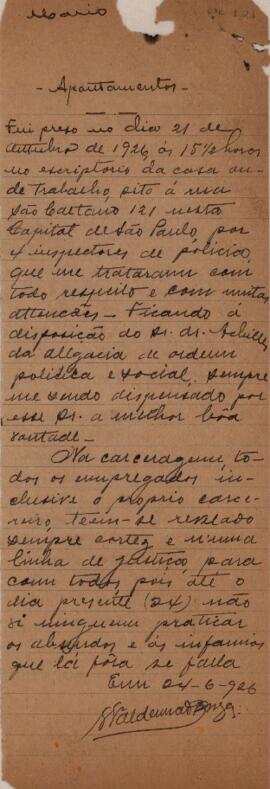 Mario
- Apontamentos -
Fui preso no dia 21 de
de 1926, ás 15½ horas
no escriptorio da casa on-
de trabalho, sito á rua
São Caetano 121 nesta
Capital de São Paulo, por
4 inspectores de policia,
que me trataram com
todo respeito e com muitas
attencões - Ficando á
disposição do Sr. dr. Achilles
da dlegacia de ordem
politica e social; sempre
me sendo dispensado por
esse Sr. a melhor bôa
vontade -
Na carceragem, to-
dos os empregados in-
clusive o proprio carce-
reiro, teem-se revelado
sempre cortez e n'uma
linha de justiça para
com todos, pois até o
dia presente (24) não
vi ninguem praticar
os absurdos e ás infamias
que lá fóra se falla
Em 24-6-926